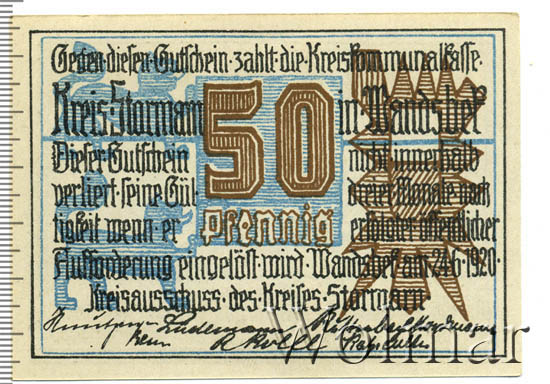 Gegen diesen Gutschein zahlt die Kreiskommunalkasse
Kreis Stormarn in Wandsbek
50
Pfennig
Dieser Gutschein nicht innerhalb
verliert seine Gül- dreier Monate nach
tigkeit wenn er erfolgter öffentlicher
Aufforderung eingelöst wird Wandsbek am 24.6.1920.
Kreisausschuss des Kreises Stormarn.
Wolmar